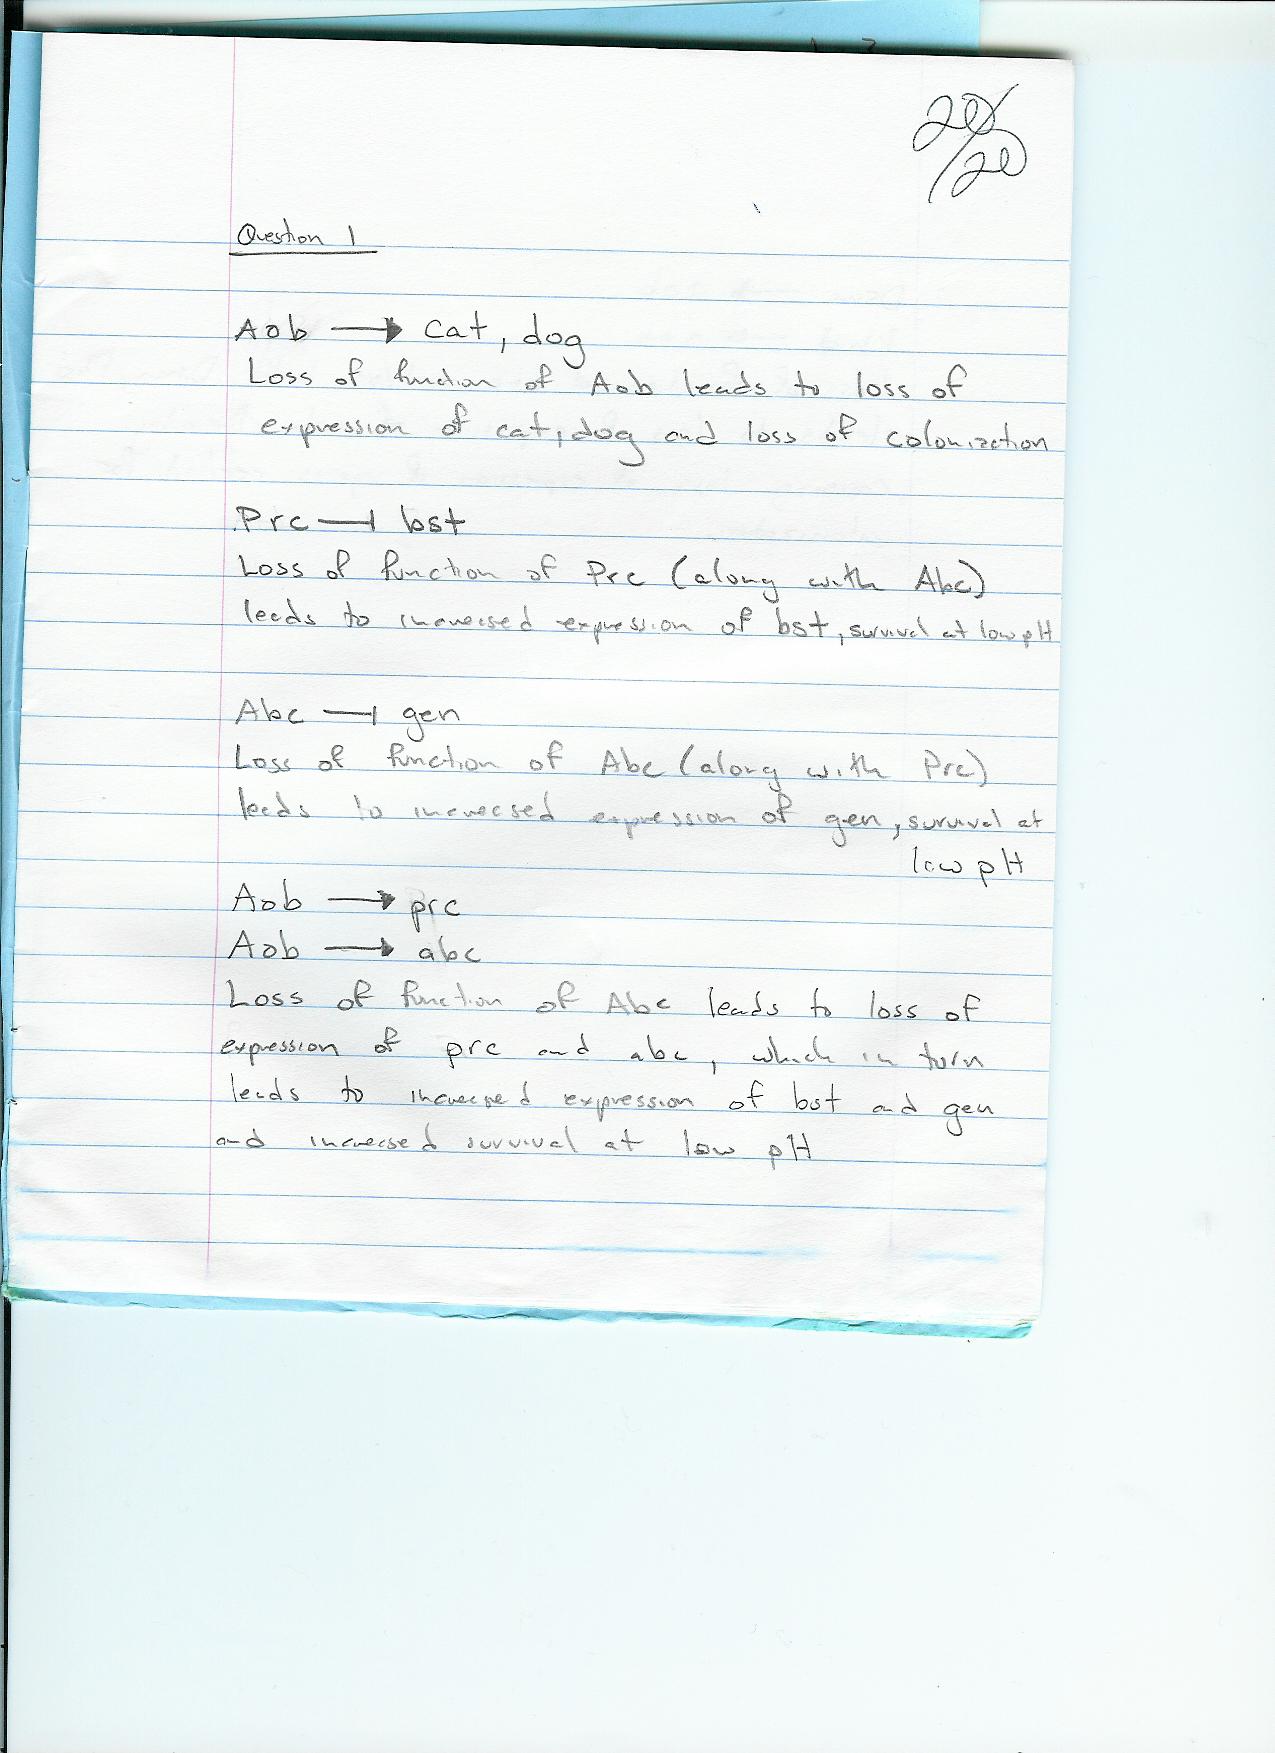 20/20
Question 1
Aob → cat, dog
Loss of function of Aob leads to loss of
expression of cat, dog and loss of colonization
Prc ⊣ bst
Loss of function of Prc (along with Abc)
leads to increased expression of bst, survival at low pH
Abc ⊣ gen
Loss of function of Abc (along with Prc)
leads to increased expression of gen, survival at
low pH
Aob → prc
Aob → abc
Loss of function of Abc leads to loss of
expression of prc and abc, which in turn
leads to increased expression of bst and gen
and increased survival at low pH